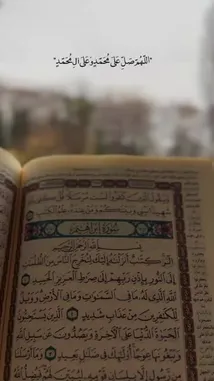 "اللَّهُمَّ صَلِّ عَلَىٰ مُحَمَّدٍ وَعَلَىٰ آلِ مُحَمَّدٍ"
وَيَقُولُ الَّذِينَ كَفَرُوا لَسْتَ مُرْسَلًا قُلْ كَفَىٰ
شَهِيدًا بَيْنِي وَبَيْنَكُمْ وَمَنْ عِندَهُ عِلْمُ
سُورَةُ إِبْرَاهِيمَ
بِسْمِ اللَّهِ الرَّحْمَٰنِ الرَّحِيمِ
الر كِتَابٌ أَنزَلْنَاهُ إِلَيْكَ لِتُخْرِجَ النَّاسَ مِنَ الظُّلُمَاتِ
إِلَى النُّورِ بِإِذْنِ رَبِّهِمْ إِلَىٰ صِرَاطِ الْعَزِيزِ الْحَمِيدِ ١
اللَّهِ الَّذِي لَهُ مَا فِي السَّمَاوَاتِ وَمَا فِي الْأَرْضِ وَوَيْلٌ
لِّلْكَافِرِينَ مِنْ عَذَابٍ شَدِيدٍ ٢ الَّذِينَ يَسْتَحِبُّونَ
الْحَيَاةَ الدُّنْيَا عَلَى الْآخِرَةِ وَيَصُدُّونَ عَن سَبِيلِ اللَّهِ
وَيَبْغُونَهَا عِوَجًا أُولَٰئِكَ فِي ضَلَالٍ بَعِيدٍ ٣ وَمَا أَرْسَلْنَا
مِن رَّسُولٍ إِلَّا بِلِسَانِ